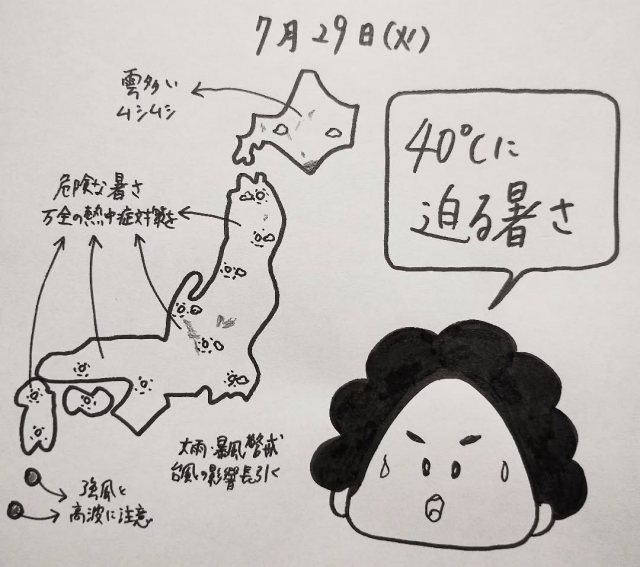 7月29日(火)
雲多い
ムシムシ
40℃に
迫る暑さ
危険な暑さ
万全の熱中症対策を
大雨・暴風警戒
台風の影響長引く
強風と
高波に注意